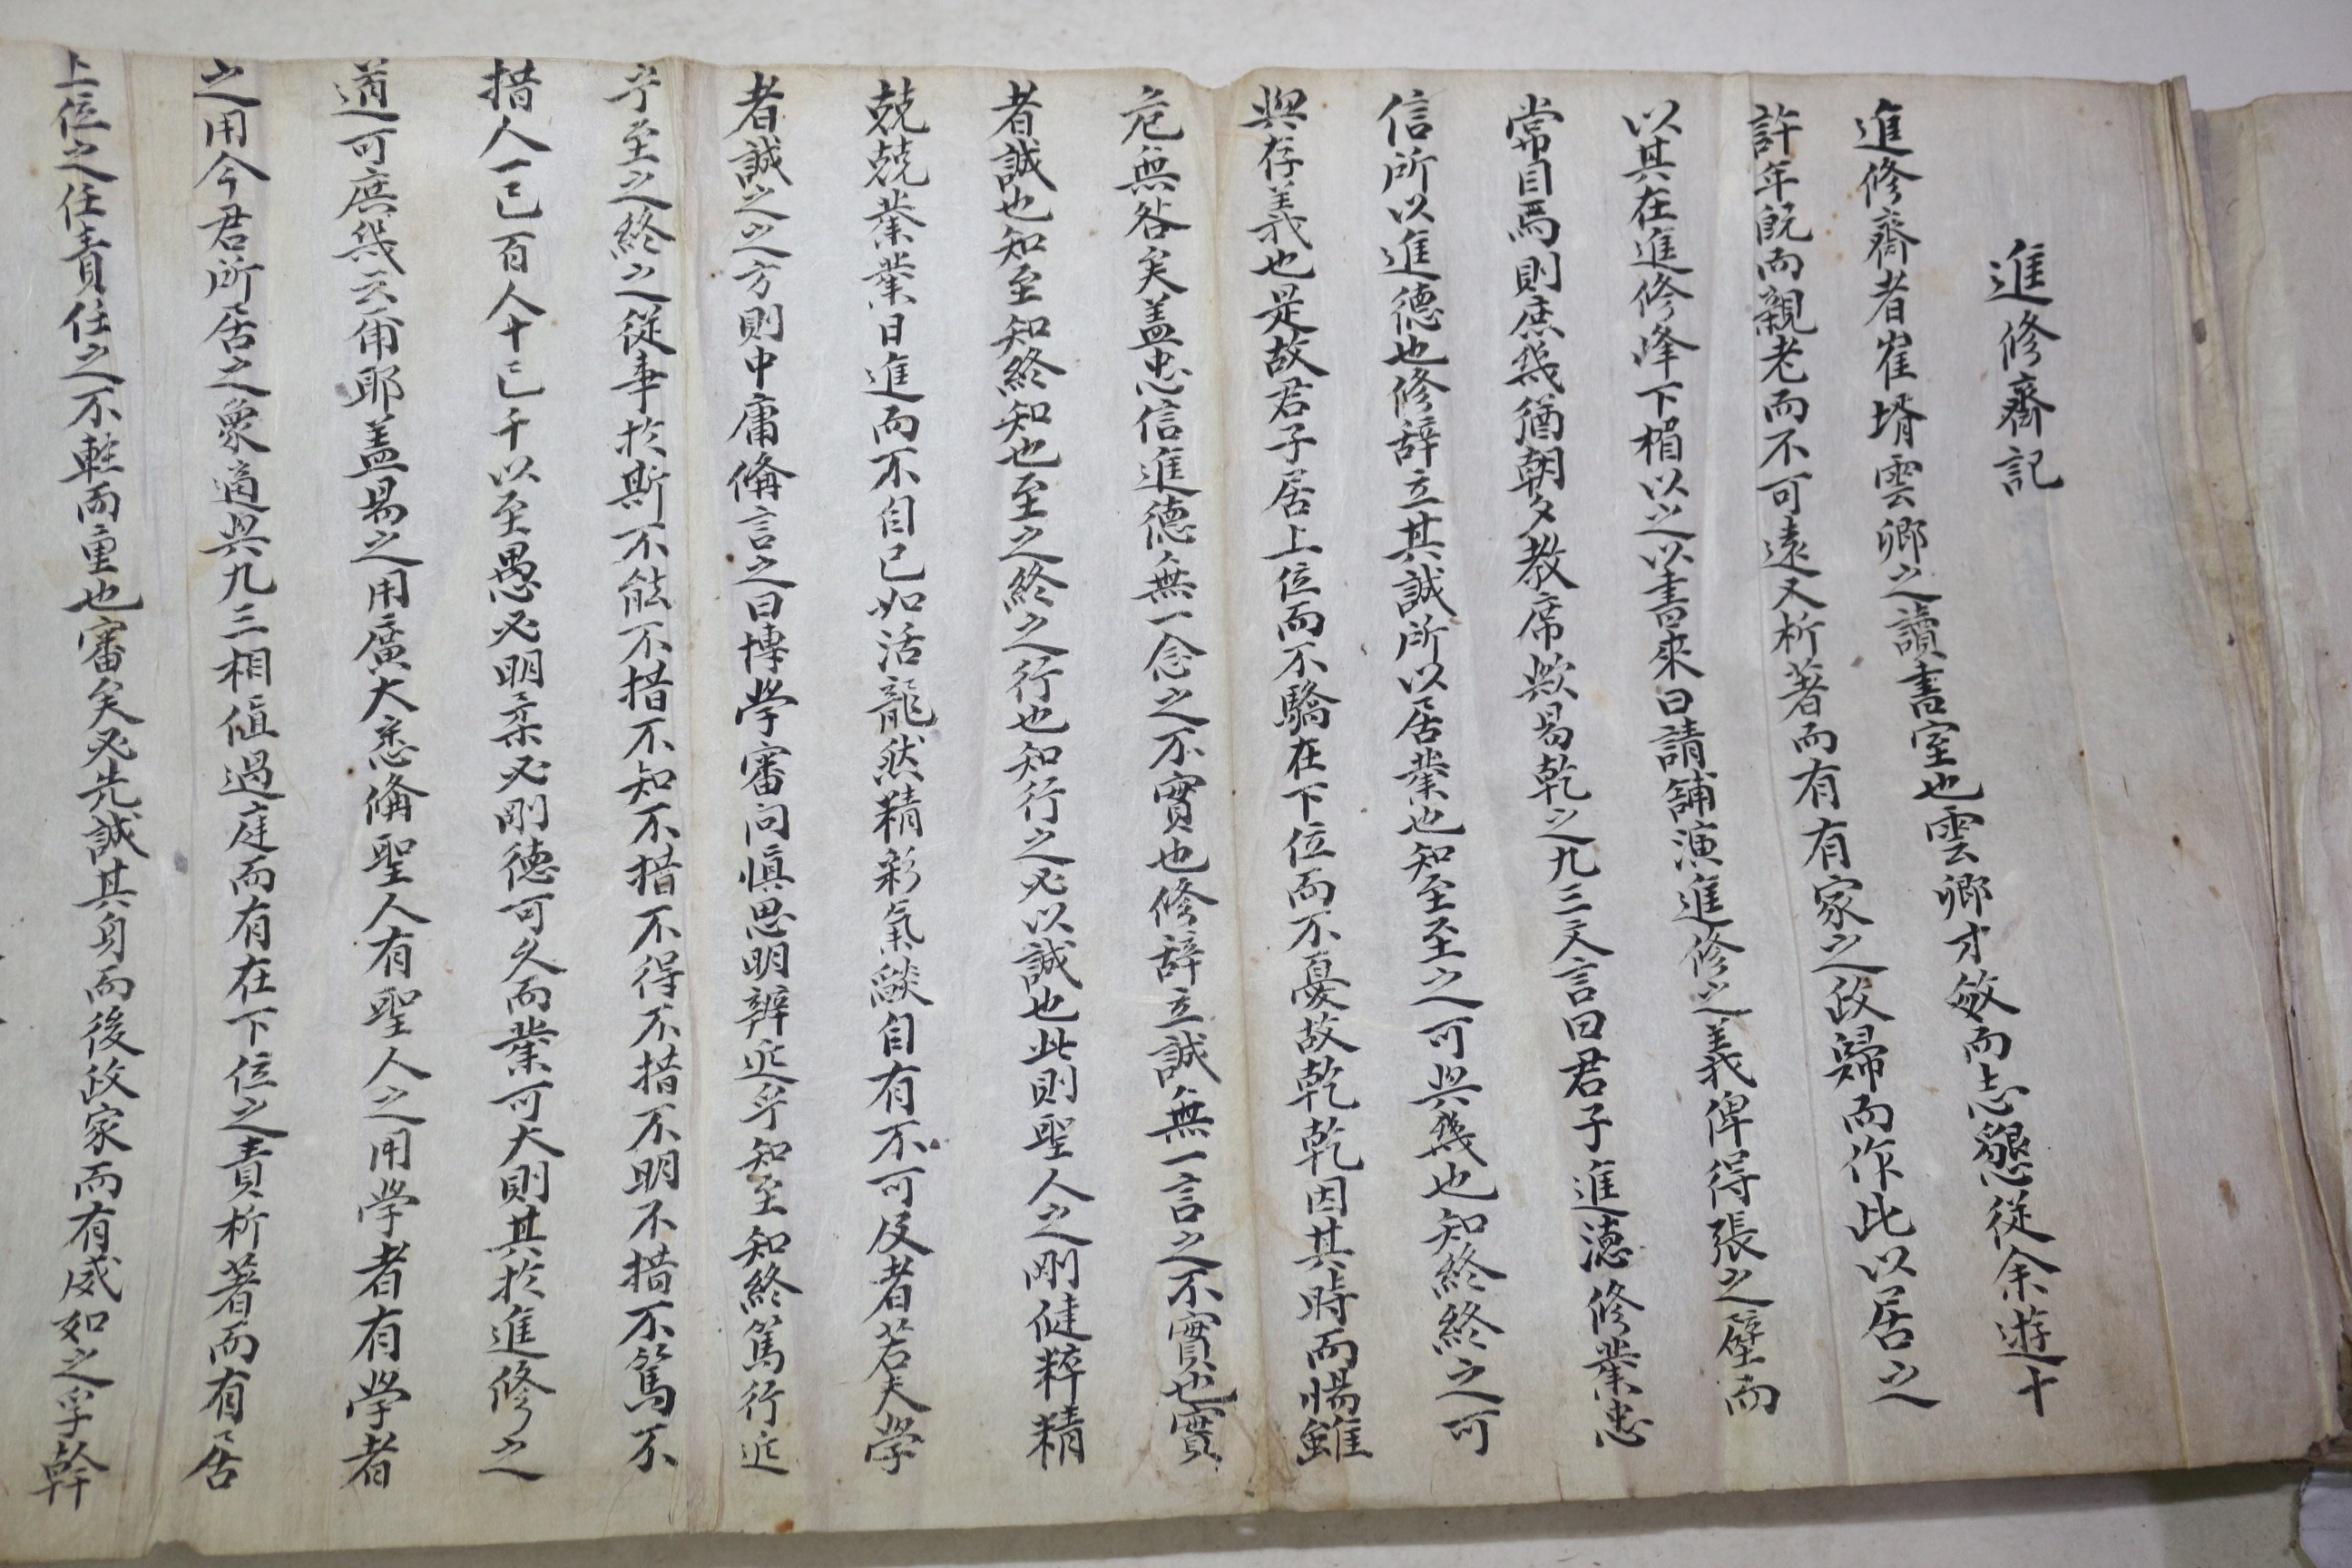 進修齋記
進修齋者崔壻雲卿之讀書室也雲卿才敏而志懇從余遊十
許年旣而親老而不可遠又析著而有有家之政歸而作此以居之
以其在進修峰下楣以之以書來曰請舖演進修之義俾得張之壁而
常目焉則庶幾猶朝夕教席歟易乾之九三文言曰君子進德修業忠
信所以進德也修辞立其誠所以居業也知至至之可與幾也知終終之可
與存義也是故君子居上位而不驕在下位而不憂故乾乾因其時而惕雖
危無咎矣盖忠信進德無一念之不實也修辞立誠無一言之不實也實
者誠也知至知終知也至之終之行也知行之必以誠也此則聖人之剛健粹精
兢兢業業日進而不自已如活龍然精彩氣燄自有不可及者若夫學
者誠之之方則中庸俻言之曰博學審问愼思明辨近乎知至知終篤行近
乎至之終之從事於斯不能不措不知不措不得不措不明不措不篤不
措人一己百人十己千以至愚必明柔必剛德可久而業可大則其於進修之
道可庶幾云甭耶盖易之用廣大悉俻聖人有聖人之用學者有學者
之用今君所居之象適與九三相値過庭而有在下位之責析著而有居
上位之任責任之不輕而重也審矣必先誠其身而後政家而有威如之孚幹